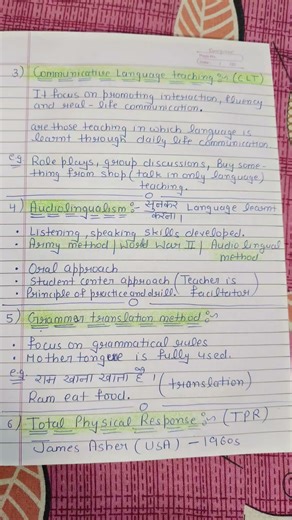 3) Communicative Language teaching :- (CLT)
It focus on promoting interaction, fluency
and real-life communication.
are those teaching in which language is
learnt through daily life communication
eg Role plays, group discussions, Buy some-
thing from shop (talk in only language)
teaching.
4) Audiolingualism :- सुनकर Language learnt
करना।
• Listening, speaking skills developed.
• Army method | World War II | Audio lingual
method
• Oral approach
• Student center approach (Teacher is
• Principle of practice and drill. Facilitator)
5) Grammer translation method :-
• Focus on grammatical rules
• Mother tongue is fully used.
eg. राम खाना खाता है। (translation)
Ram eat food.
6) Total Physical Response :- (TPR)
James Asher (USA) - 1960s